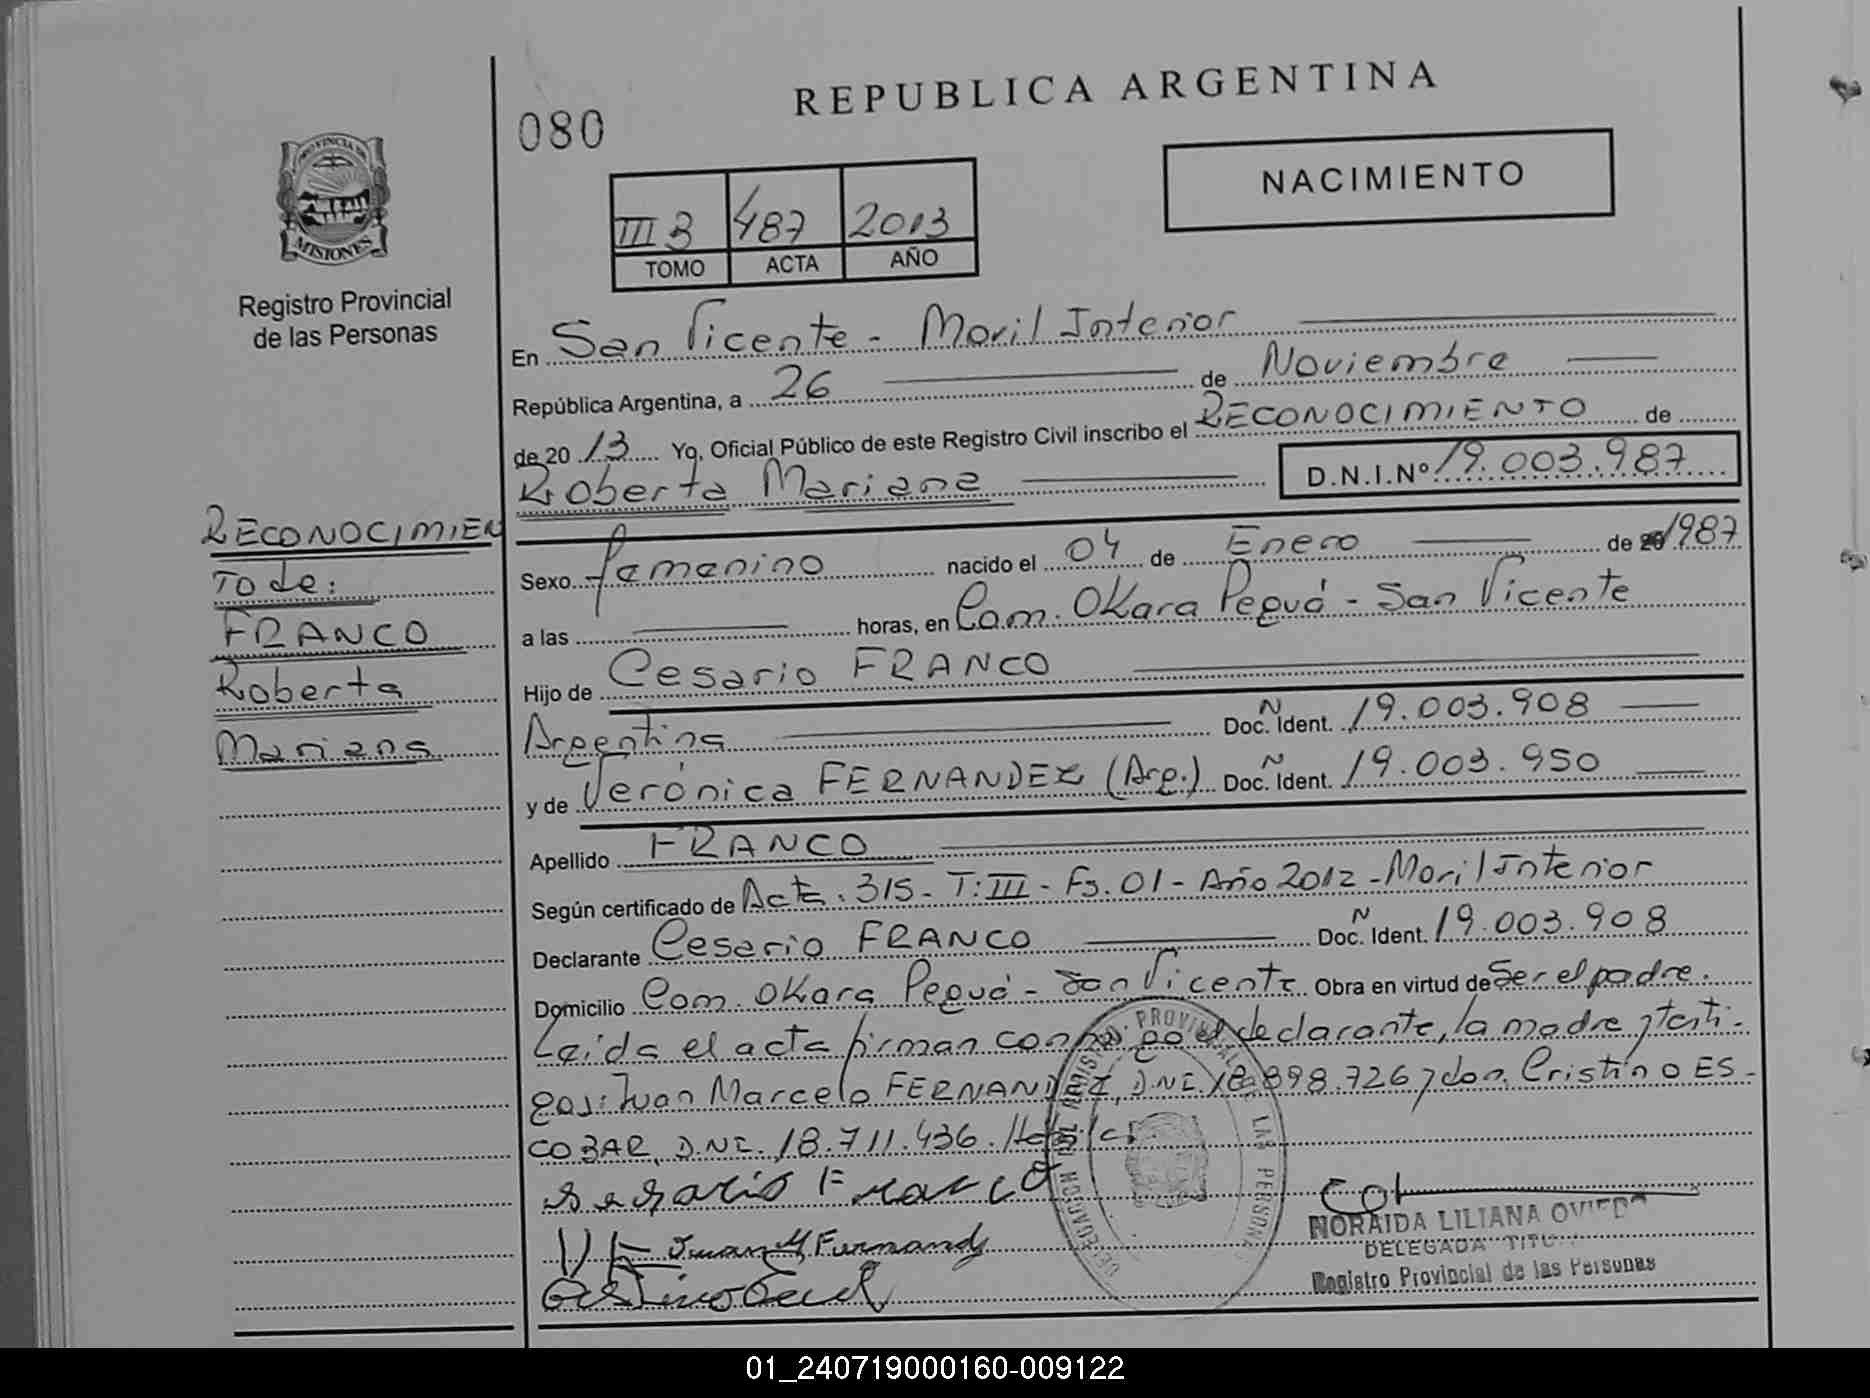 REPUBLICA ARGENTINA
080
NACIMIENTO
PROVINCIA DE
MISIONES
III B 487 2013
TOMO ACTA AÑO
Registro Provincial
de las Personas
En San Vicente - Moril Interior
República Argentina, a 26 de Noviembre
de 20 13 Yo, Oficial Público de este Registro Civil inscribo el RECONOCIMIENTO de
Roberta Mariana D.N.I.Nº 19.003.987
RECONOCIMIEN
TO de:
FRANCO
Roberta
Mariana
Sexo femenino nacido el 04 de Enero de 1987
a las horas, en Com. Okara Peguá - San Vicente
Hijo de Cesario FRANCO
Argentina Doc. Ident. 19.003.908
y de Verónica FERNANDEZ (Arg.) Doc. Ident. 19.003.950
Apellido FRANCO
Según certificado de Acta. 315 - T: III - Fs. 01 - Año 2012 - Moril Interior
Declarante Cesario FRANCO Doc. Ident. 19.003.908
Domicilio Com. Okara Peguá - San Vicente Obra en virtud de Ser el padre.
Leída el acta firman conmigo el declarante, la madre y testi-
gos: Juan Marcelo FERNANDEZ, DNI. 18.898.726 y don Cristino ES-
COBAR, DNI. 18.711.436.
Sesario Franco
Juan M Fernand
NORAIDA LILIANA OVIEDO
DELEGADA TITU
Registro Provincial de las Personas
DELEGACION DEL REGISTRO PROVINCIAL DE LAS PERSONAS
01_240719000160-009122